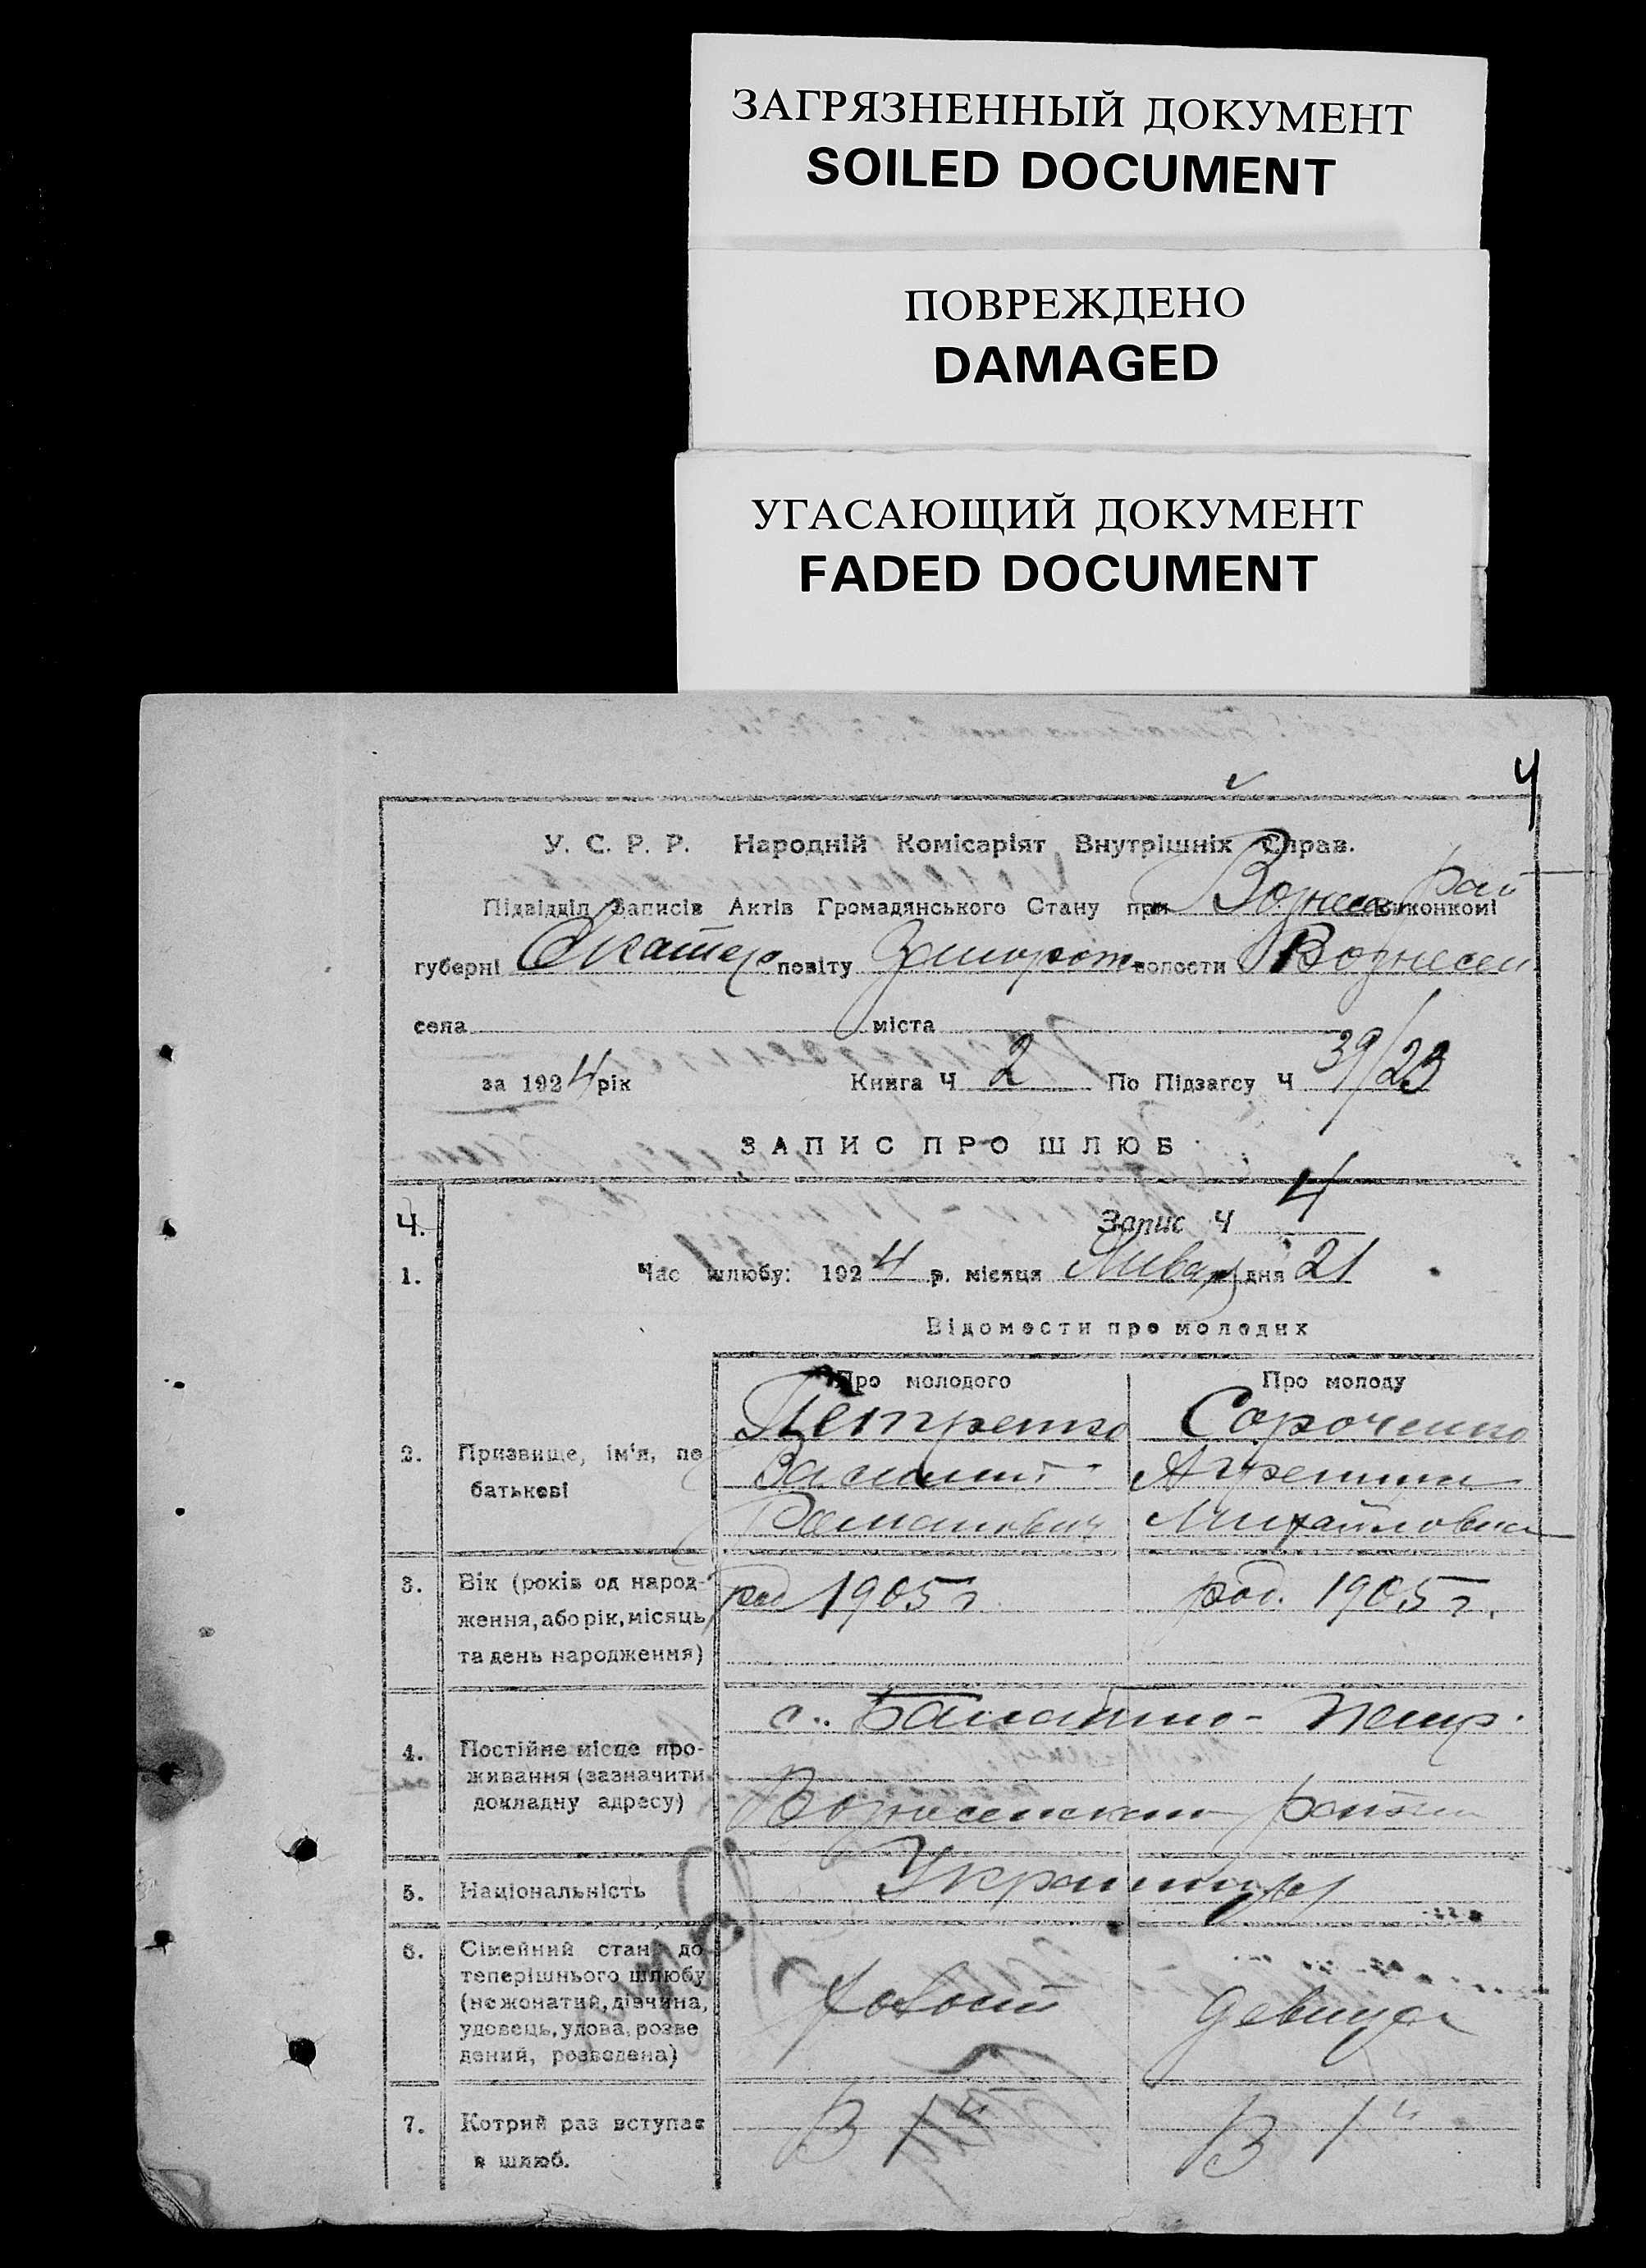 ЗАГРЯЗНЕННЫЙ ДОКУМЕНТ
SOILED DOCUMENT
ПОВРЕЖДЕНО
DAMAGED
УГАСАЮЩИЙ ДОКУМЕНТ
FADED DOCUMENT
4
У. С. Р. Р. Народній Комісаріят Внутрішніх Справ.
Підвідділ Записів Актів Громадянського Стану при Вознес. рай виконкомі
губерні Екатер повіту Запорож волости Вознесен
села міста
за 1924 рік Книга Ч 2 По Підзагсу Ч 39/23
ЗАПИС ПРО ШЛЮБ
Ч. Запис Ч 4
1. Час шлюбу: 1924 р. місяця Январ дня 21
Відомости про молодих
Про молодого Про молоду
Петренко Сороченко
2. Призвище, ім'я, по Василий
батькові
Романович Михайловна
3. Вік (років од народ- род 1905 г. род. 1905 г.
ження, або рік, місяць
та день народження)
с. Балабино- Петр.
4. Постійне місце про-
живання (зазначити
докладну адресу) Вознесенский район
5. Національність Украинцы
6. Сімейний стан до
теперішнього шлюбу
(нежонатий, дівчина, холост девица
удовець, удова, розве
дений, розведена)
7. Котрий раз вступає В 1й В 1й
в шлюб.